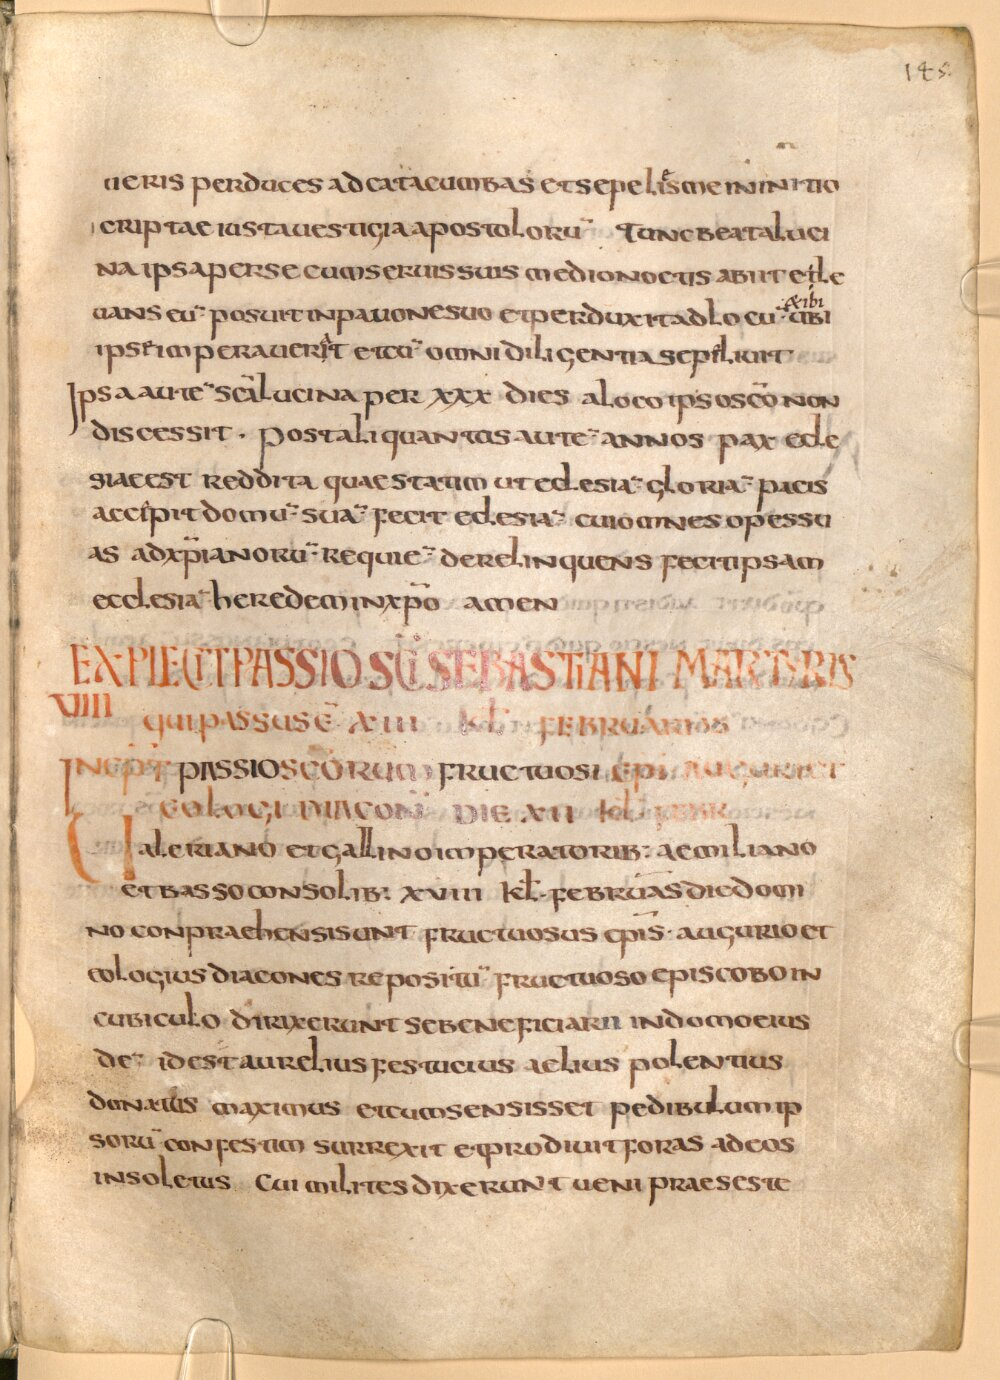 145
ueris perduces ad catacumbas et sepelies me in initio
criptae iusta uestigia apostoloru˜ Tunc beata luci
na ipsa per se cum seruis suis medio noctis abiit et le
& ibi
uans eu˜ posuit in pauone suo et perduxit ad locu˜ ubi
ipse imperauerat et cu˜ omni diligentia sepeliuit
Ipsa aute˜ sc̄a lucina per xxx dies a loco ipso sc̄o non
discessit · Post aliquantus aute˜ annos pax ecle
siae est reddita quae statim ut eclesia˜ gloria˜ pacis
accipit domu˜ sua˜ fecit eclesia˜ cui omnes opes su
as ad xp̄ianoru˜ requie˜ derelinquens fecit ipsam
ecclesia˜ heredem in xp̄o amen
EXPLICIT PASSIO SC̄I SEBASTIANI MARTYRIS
VIIII
qui passus ē XIII kl̄ februarias
Incp̄t passio sc̄orum fructuosi ep̄i augurii et
eologi diacon̄ die XII kl̄ febr
Ualeriano et gallino imperatorib: aemiliano
et basso consolib: xviii kl̄· februas die domi
no conpraehensi sunt fructuosus ep̄is· augurio et
eologius diacones repositu˜ fructuoso episcobo in
cubiculo dirixerunt se beneficiarii in domo eius
de˜ id est aurelius festucius aelius polentius
donatus maximus et cum sensisset pedibulum ip
soru˜ confestim surrexit et prodiuit foras ad eos
in soletus Cui milites dixerunt ueni praeses te